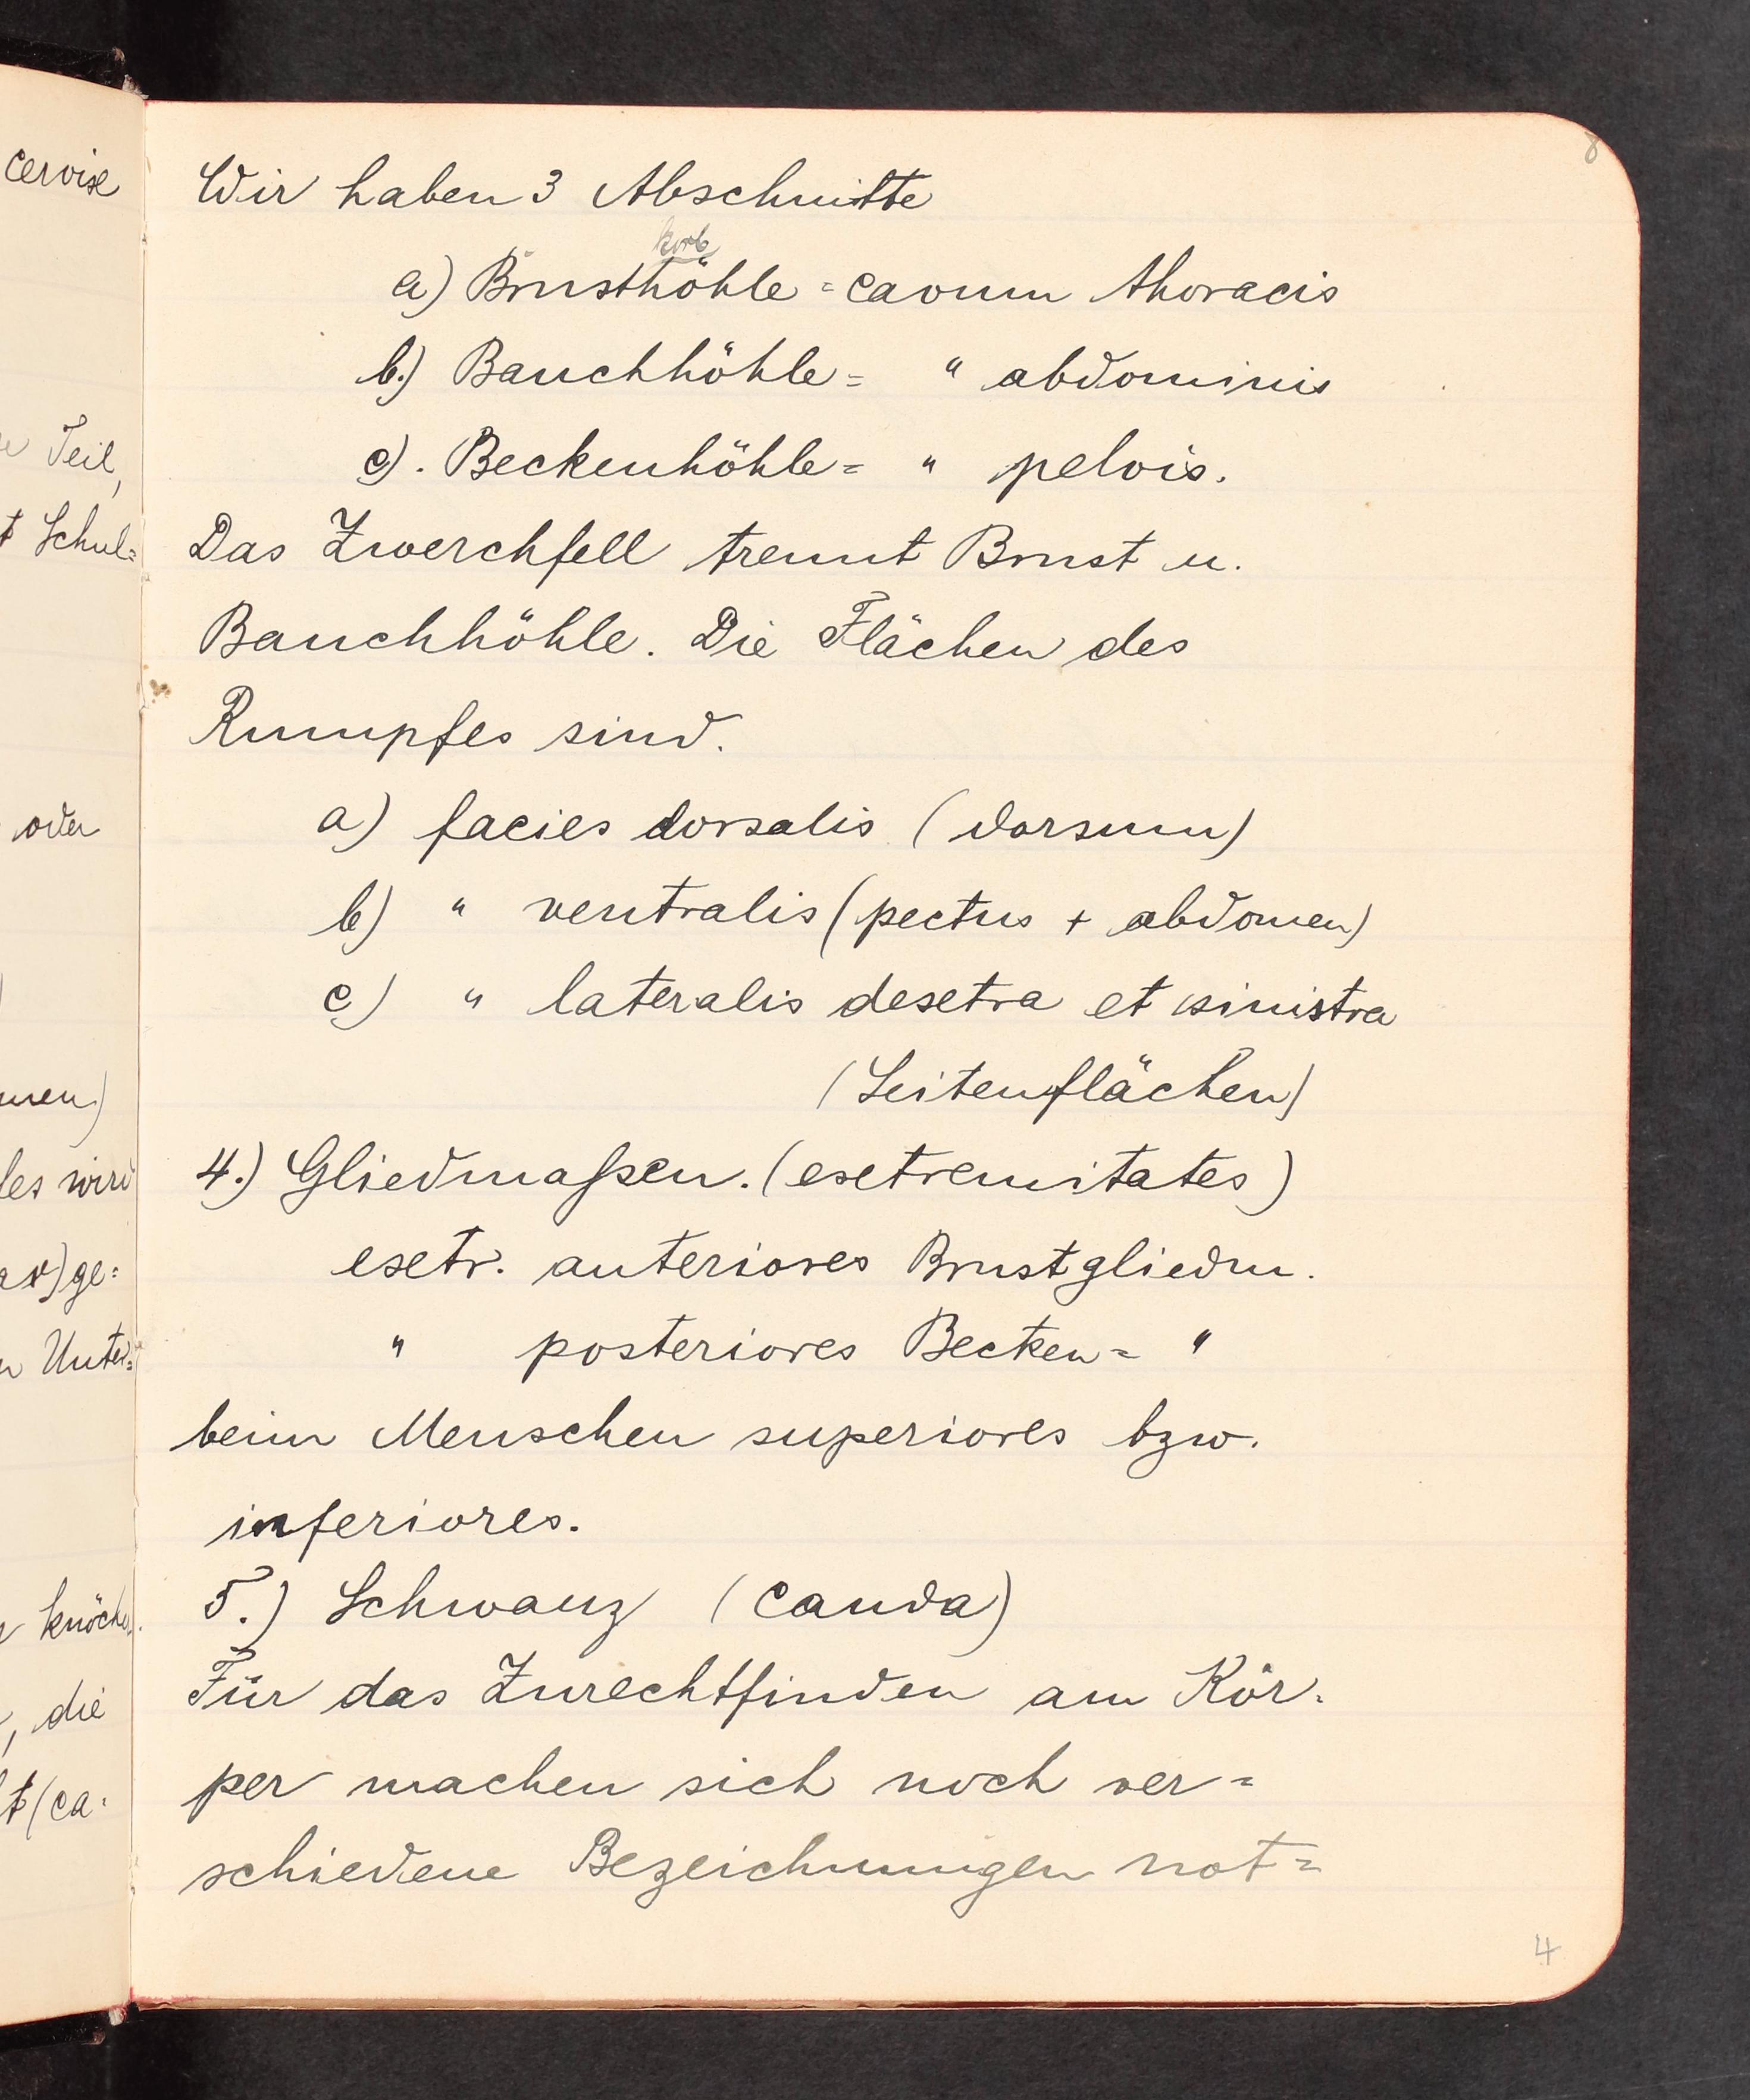 cervix
Teil,
Schul=
oder
men)
les wird
ax) ge=
Unter=
knöch
, die
t (ca=
8
Wir haben 3 Abschnitte
korb
a) Brusthöhle = cavum thoracis
b.) Bauchhöhle = " abdominis
c). Beckenhöhle = " pelvis.
Das Zwerchfell trennt Brust u.
Bauchhöhle. Die Flächen des
Rumpfes sind.
a) facies dorsalis (dorsum)
b) " ventralis (pectus + abdomen)
c) " lateralis dextra et sinistra
(Seitenflächen)
4.) Gliedmaßen. (extremitates)
extr. anteriores Brustgliedm.
" posteriores Becken= "
beim Menschen superiores bzw.
inferiores.
5.) Schwanz (cauda)
Für das Zurechtfinden am Kör=
per machen sich noch ver=
schiedene Bezeichnungen not=
4